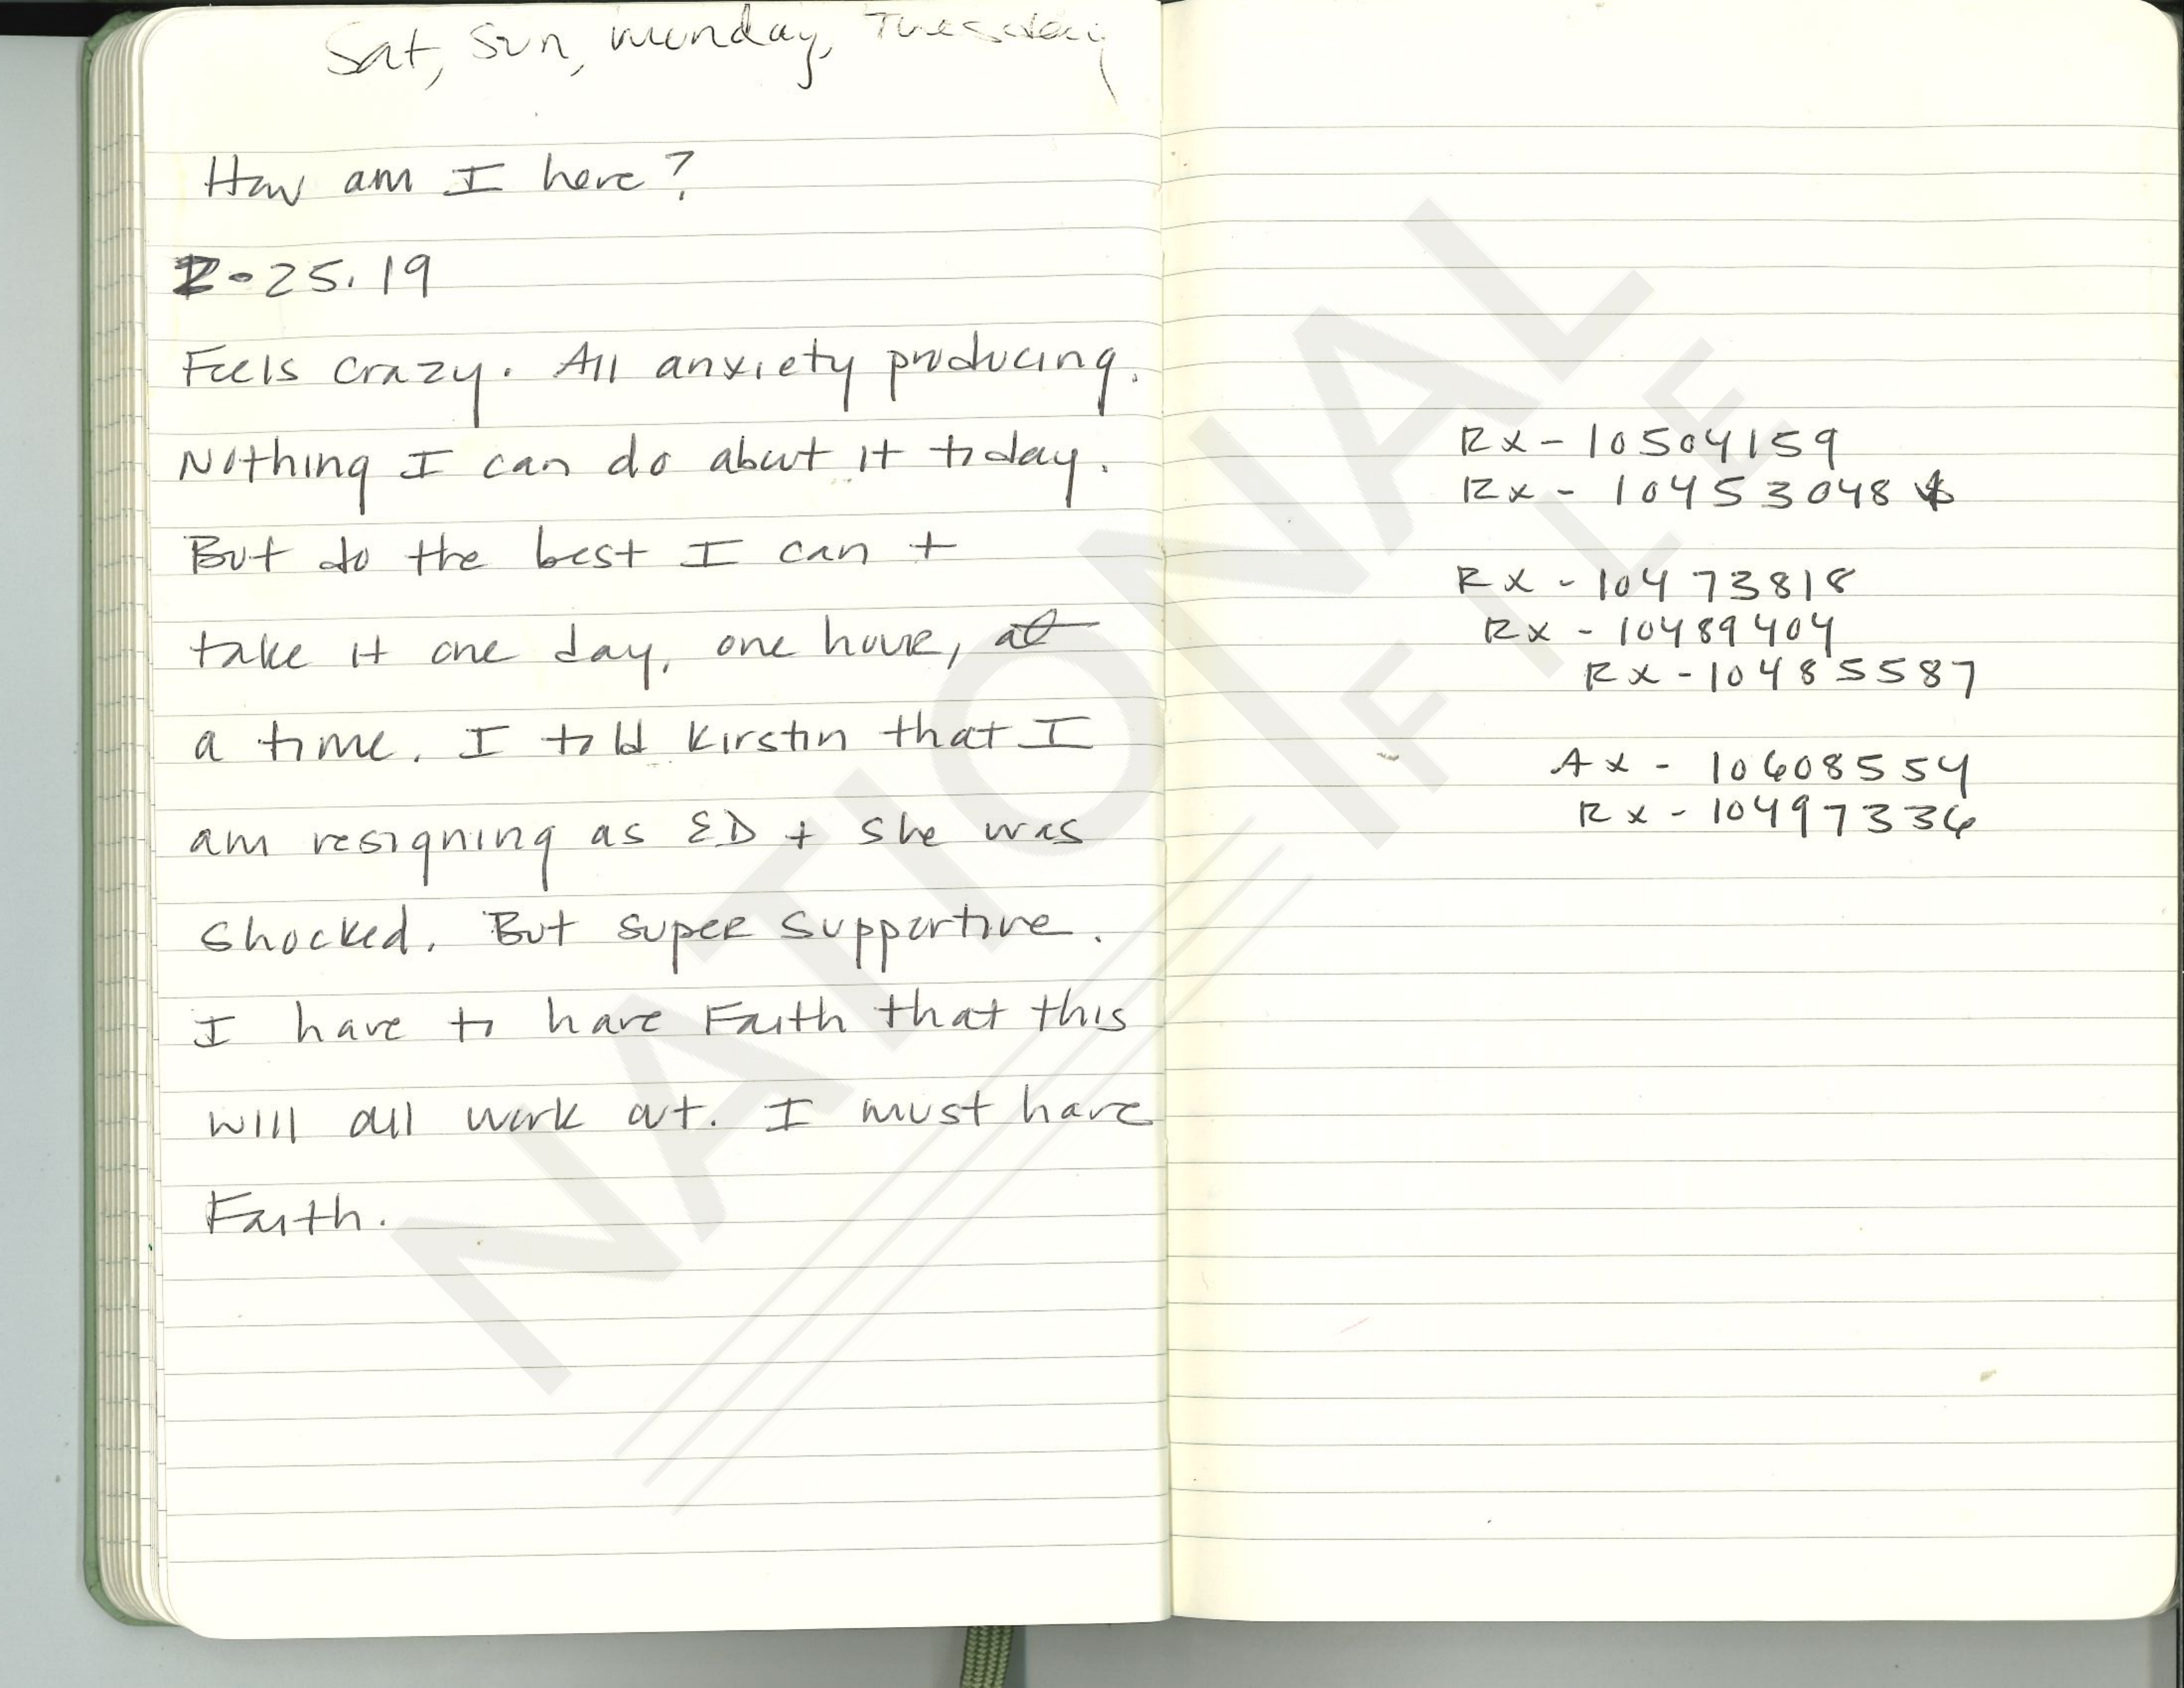 Sat, Sun, Monday, Tuesday
How am I here?
2-25.19
Feels crazy. All anxiety producing.
Nothing I can do about it today.
But do the best I can +
take it one day, one hour,
a time. I told Kirstin that I
am resigning as ED + she was
shocked. But super supportive.
I have to have Faith that this
will all work out. I must have
Faith.
Rx - 10504159
Rx - 10453048
Rx - 10473818
Rx - 10489404
Rx - 10485587
Rx - 10608554
Rx - 10497336
NATIONAL
FILE